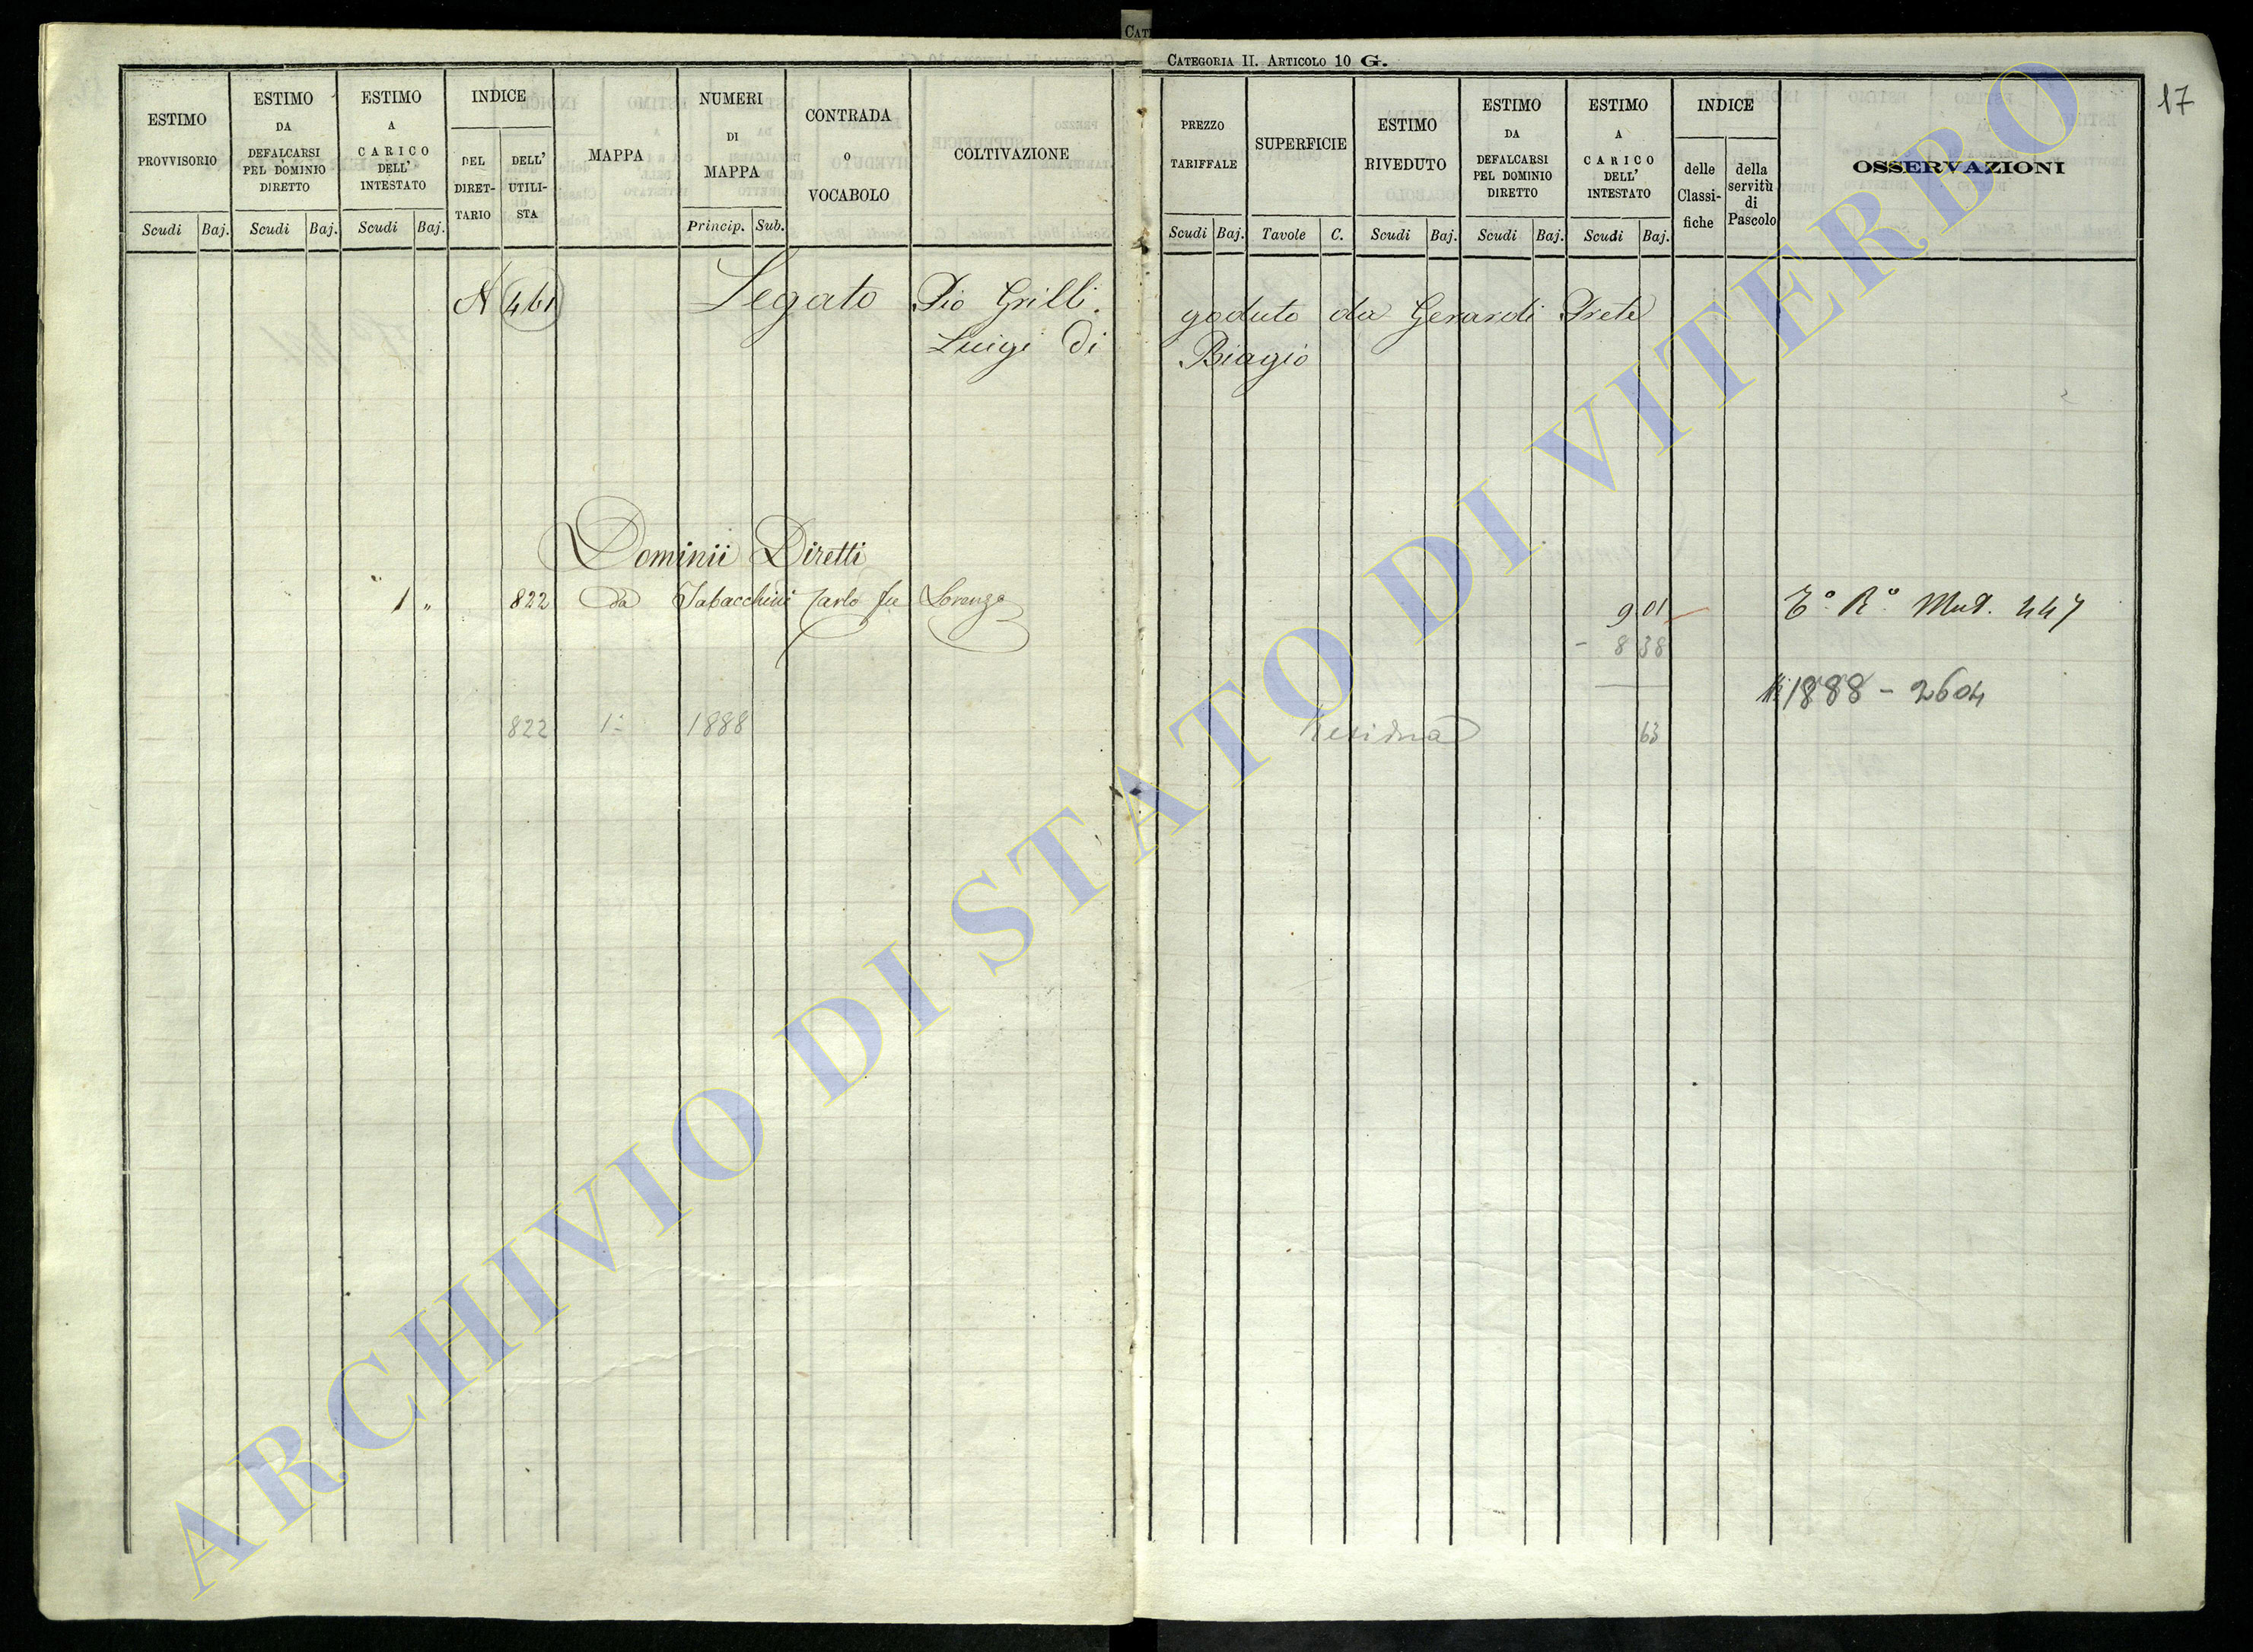 CATEGORIA II. ARTICOLO 10 G.
17
ESTIMO PROVVISORIO
Scudi Baj.
ESTIMO DA DEFALCARSI PEL DOMINIO DIRETTO
Scudi Baj.
ESTIMO A CARICO DELL' INTESTATO
Scudi Baj.
INDICE
DEL DIRET-TARIO
DELL' UTILI-STA
MAPPA
NUMERI DI MAPPA
Princip. Sub.
CONTRADA O VOCABOLO
COLTIVAZIONE
PREZZO TARIFFALE
Scudi Baj.
SUPERFICIE
Tavole C.
ESTIMO RIVEDUTO
Scudi Baj.
ESTIMO DA DEFALCARSI PEL DOMINIO DIRETTO
Scudi Baj.
ESTIMO A CARICO DELL' INTESTATO
Scudi Baj.
INDICE
delle Classi-fiche
della servitù di Pascolo
OSSERVAZIONI
N 461 Legato Pio Grilli goduto da Gerardi Prete
Luigi di Biagio
Dominii Diretti
1 " 822 da Tabacchini Carlo fu Lorenzo 9 01 Mut. 447
- 8 38
1888 - 2604
822 1888 Residua 63
ARCHIVIO DI STATO DI VITERBO